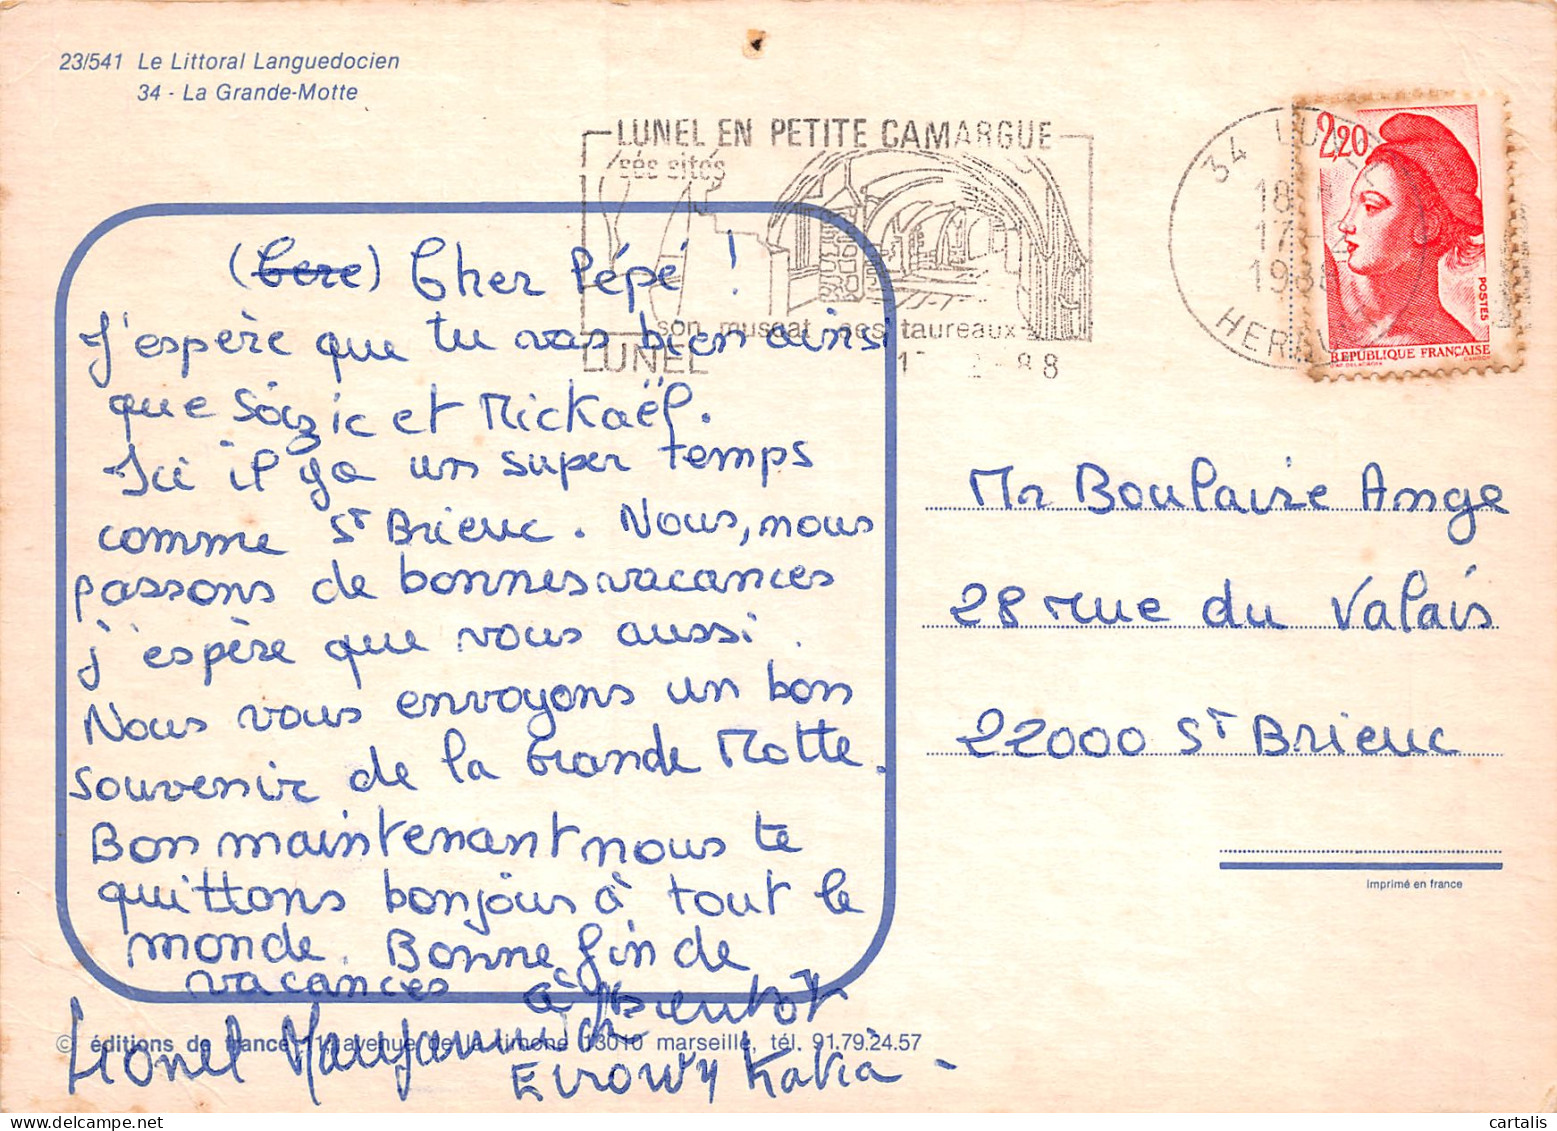 23/541 Le Littoral Languedocien
34 - La Grande-Motte
LUNEL EN PETITE CAMARGUE
ses sites
son muscat ses taureaux
LUNEL
34 LUNEL
18
17
1988
HERAULT
2,20
POSTES
REPUBLIQUE FRANÇAISE
Cher Pépé !
J'espère que tu vas bien ainsi
que et Mickaël.
Ici il ya un super temps
comme St Brieuc. Nous, nous
passons de bonnes vacances
j'espère que vous aussi.
Nous vous envoyons un bon
souvenir de la Grande Motte.
Bon maintenant nous te
quittons bonjours à tout le
monde. Bonne fin de
vacances à bientôt
Lionel
Katia
Mr Boulaire Ange
28 rue du Valais
22000 St Brieuc
imprimé en france
© éditions de france avenue de la timone 13010 marseille, tél. 91.79.24.57
cartalis